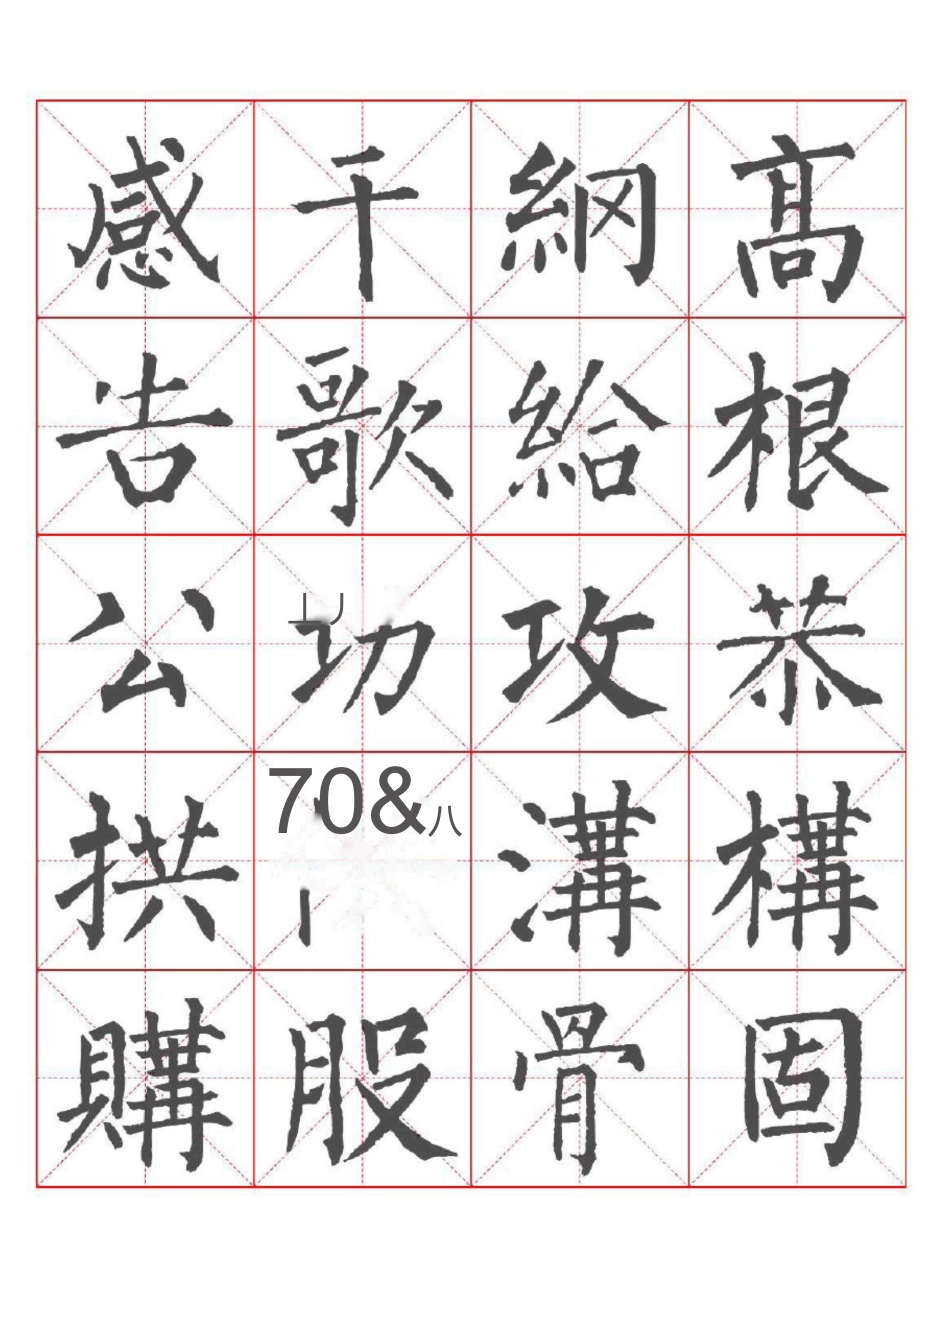 感干綱髙
告歌給根
公功攻恭
拱70&八溝構
購股骨固